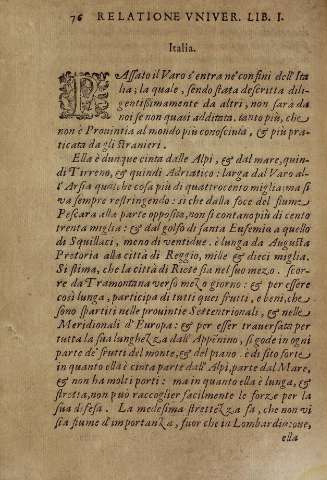 76 RELATIONE VNIVER. LIB. I.
Italia.
PAssato il Varo s'entra ne' confini dell'Ita
lia; la quale, sendo stata descritta dili-
gentissimamente da altri, non sarà da
noi se non quasi additata. tanto più, che
non è Prouintia al mondo più conosciuta, & più pra-
ticata da gli stranieri.
Ella è dunque cinta dalle Alpi, & dal mare, quin-
di Tirreno, & quindi Adriatico: larga dal Varo al-
l'Arsia qualche cosa più di quattrocento miglia; ma si
va sempre restringendo: si che dalla foce del fiume
Pescara alla parte opposita, non si contano più di cento
trenta miglia: & dal golfo di santa Eufemia a quello
di Squillaci, meno di ventidue. è lunga da Augusta
Pretoria alla città di Reggio, mille & dieci miglia.
Si stima, che la città di Riete sia nel suo mezo. scor-
re da Tramontana verso mezo giorno: & per essere
così lunga, participa di tutti quei frutti, e beni, che
sono spartiti nelle prouintie Settentrionali, & nelle
Meridionali d'Europa: & per esser trauersata per
tutta la sua lunghezza dall'Appenino, si gode in ogni
parte de' frutti del monte, & del piano. è di sito forte
in quanto ella è cinta parte dall'Alpi, parte dal Mare,
& non ha molti porti: ma in quanto ella è lunga, &
stretta, non può raccoglier facilmente le forze per la
sua difesa. La medesima strettezza fà, che non vi
sia fiume d'importanza, fuor che in Lombardia: one,
ella